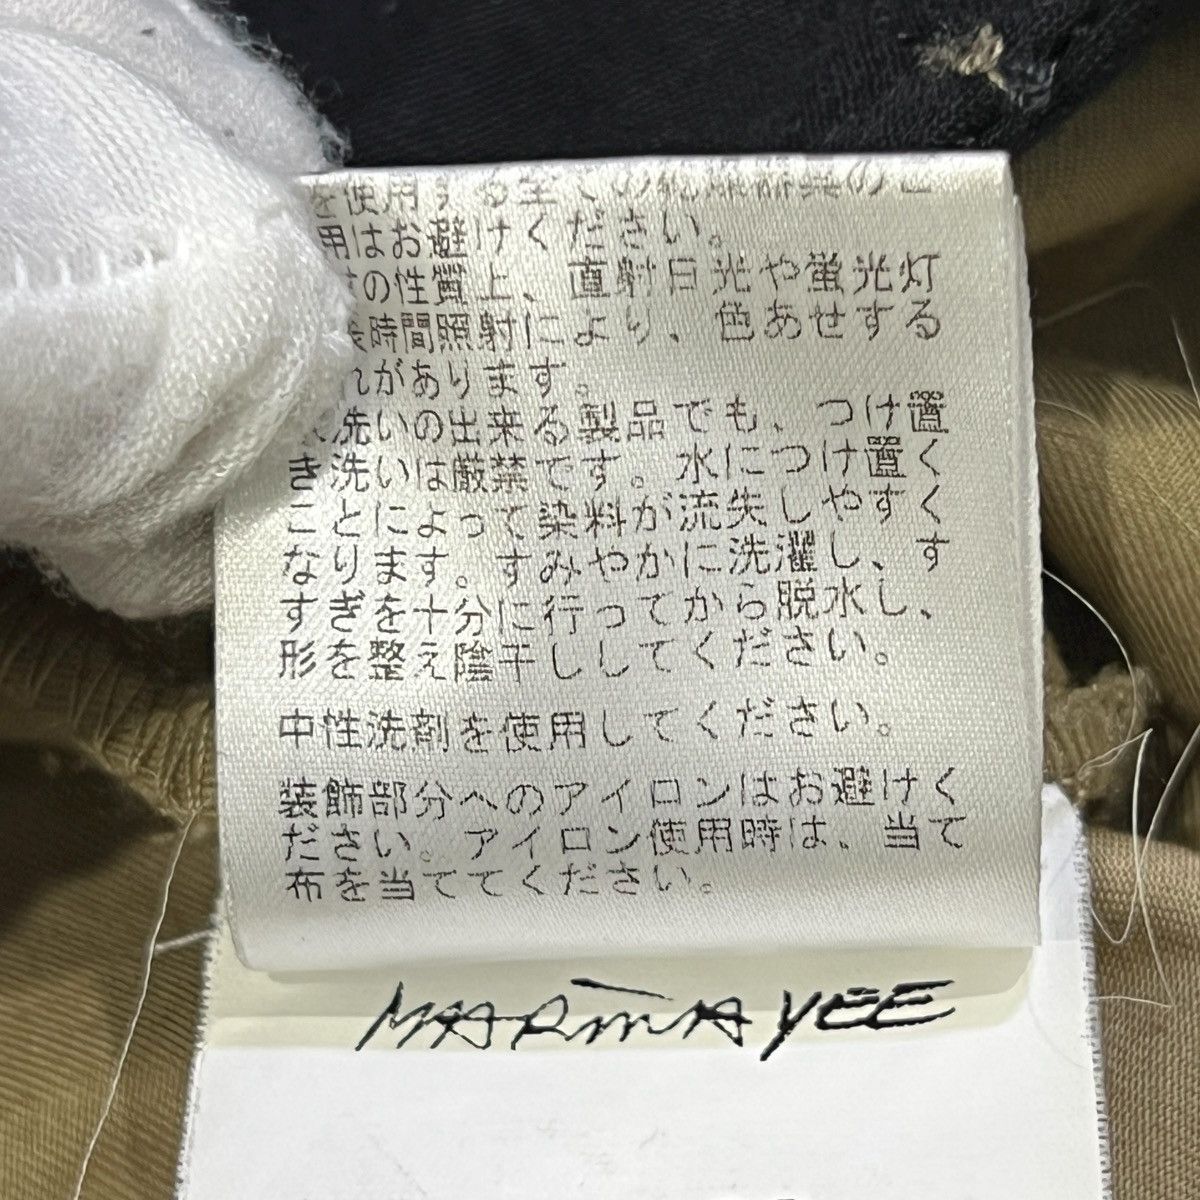 を使用する全ての
用はお避けください。
の性質上、直射日光や蛍光灯
時間照射により、色あせする
れがあります。
洗いの出来る製品でも、つけ置
き洗いは厳禁です。水につけ置く
ことによって染料が流失しやすく
なります。すみやかに洗濯し、す
すぎを十分に行ってから脱水し、
形を整え陰干ししてください。
中性洗剤を使用してください。
装飾部分へのアイロンはお避けく
ださい。アイロン使用時は、当て
布を当ててください。
MARINA YEE